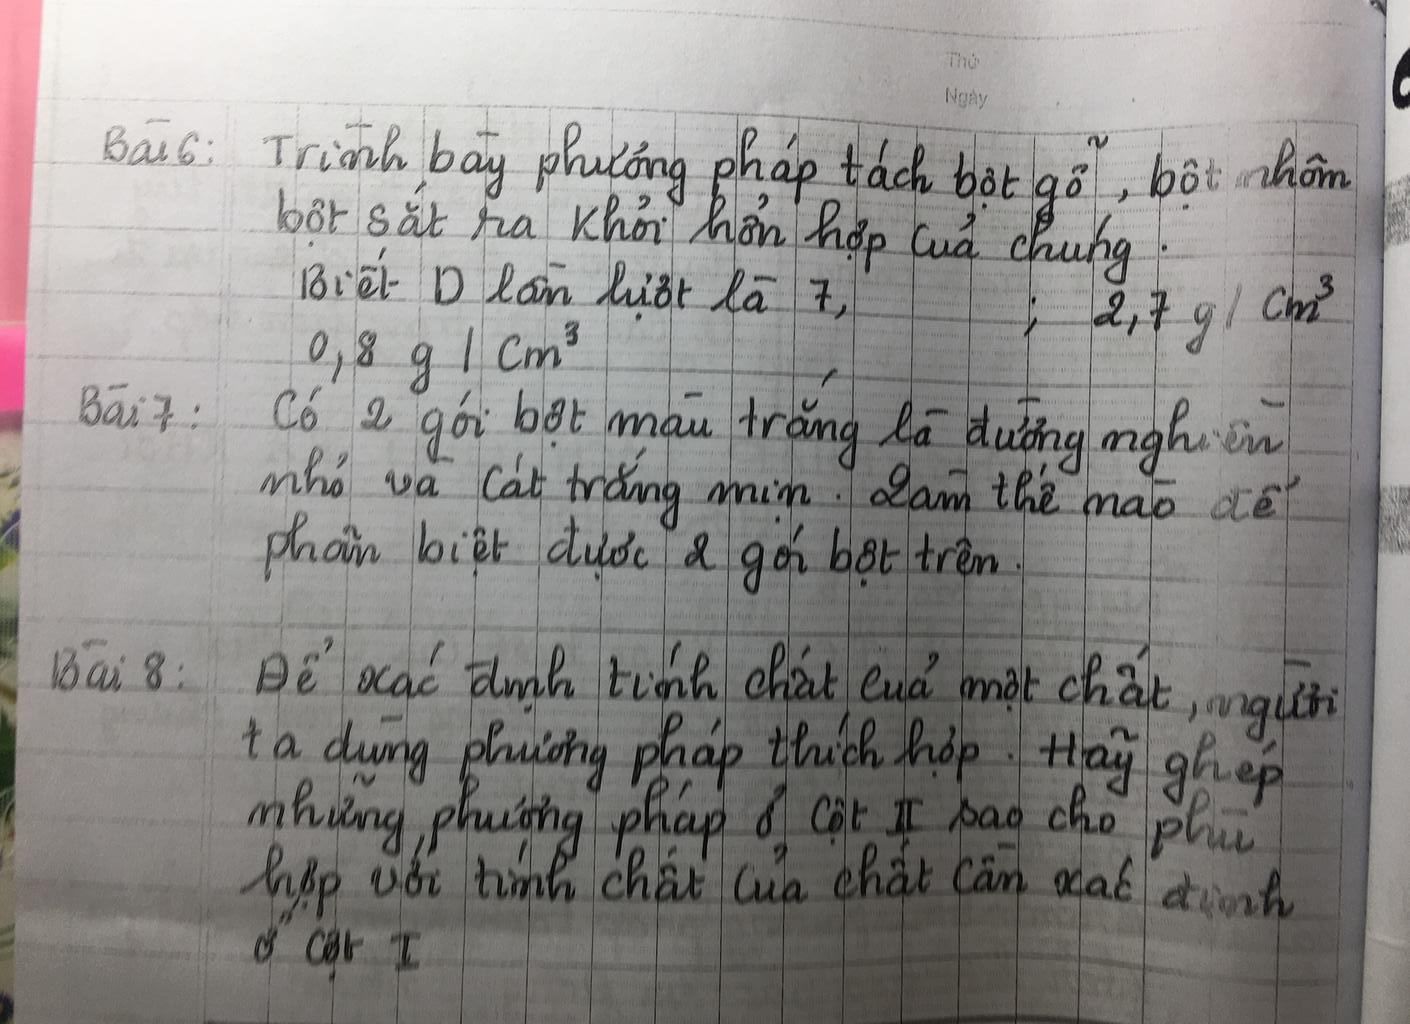 Thứ
Ngày
Bài 6: Trình bày phương pháp tách bột gỗ, bột nhôm
bột sắt ra khỏi hỗn hợp của chúng.
Biết D lần lượt là 7, ; 2,7 g/cm³
0,8 g/cm³
Bài 7: Có 2 gói bột màu trắng là đường nghiền
nhỏ và cát trắng mịn. Làm thế nào để
phân biệt được 2 gói bột trên.
Bài 8: Để xác định tính chất của một chất, người
ta dùng phương pháp thích hợp. Hãy ghép
những phương pháp ở cột II sao cho phù
hợp với tính chất của chất cần xác định
ở cột I